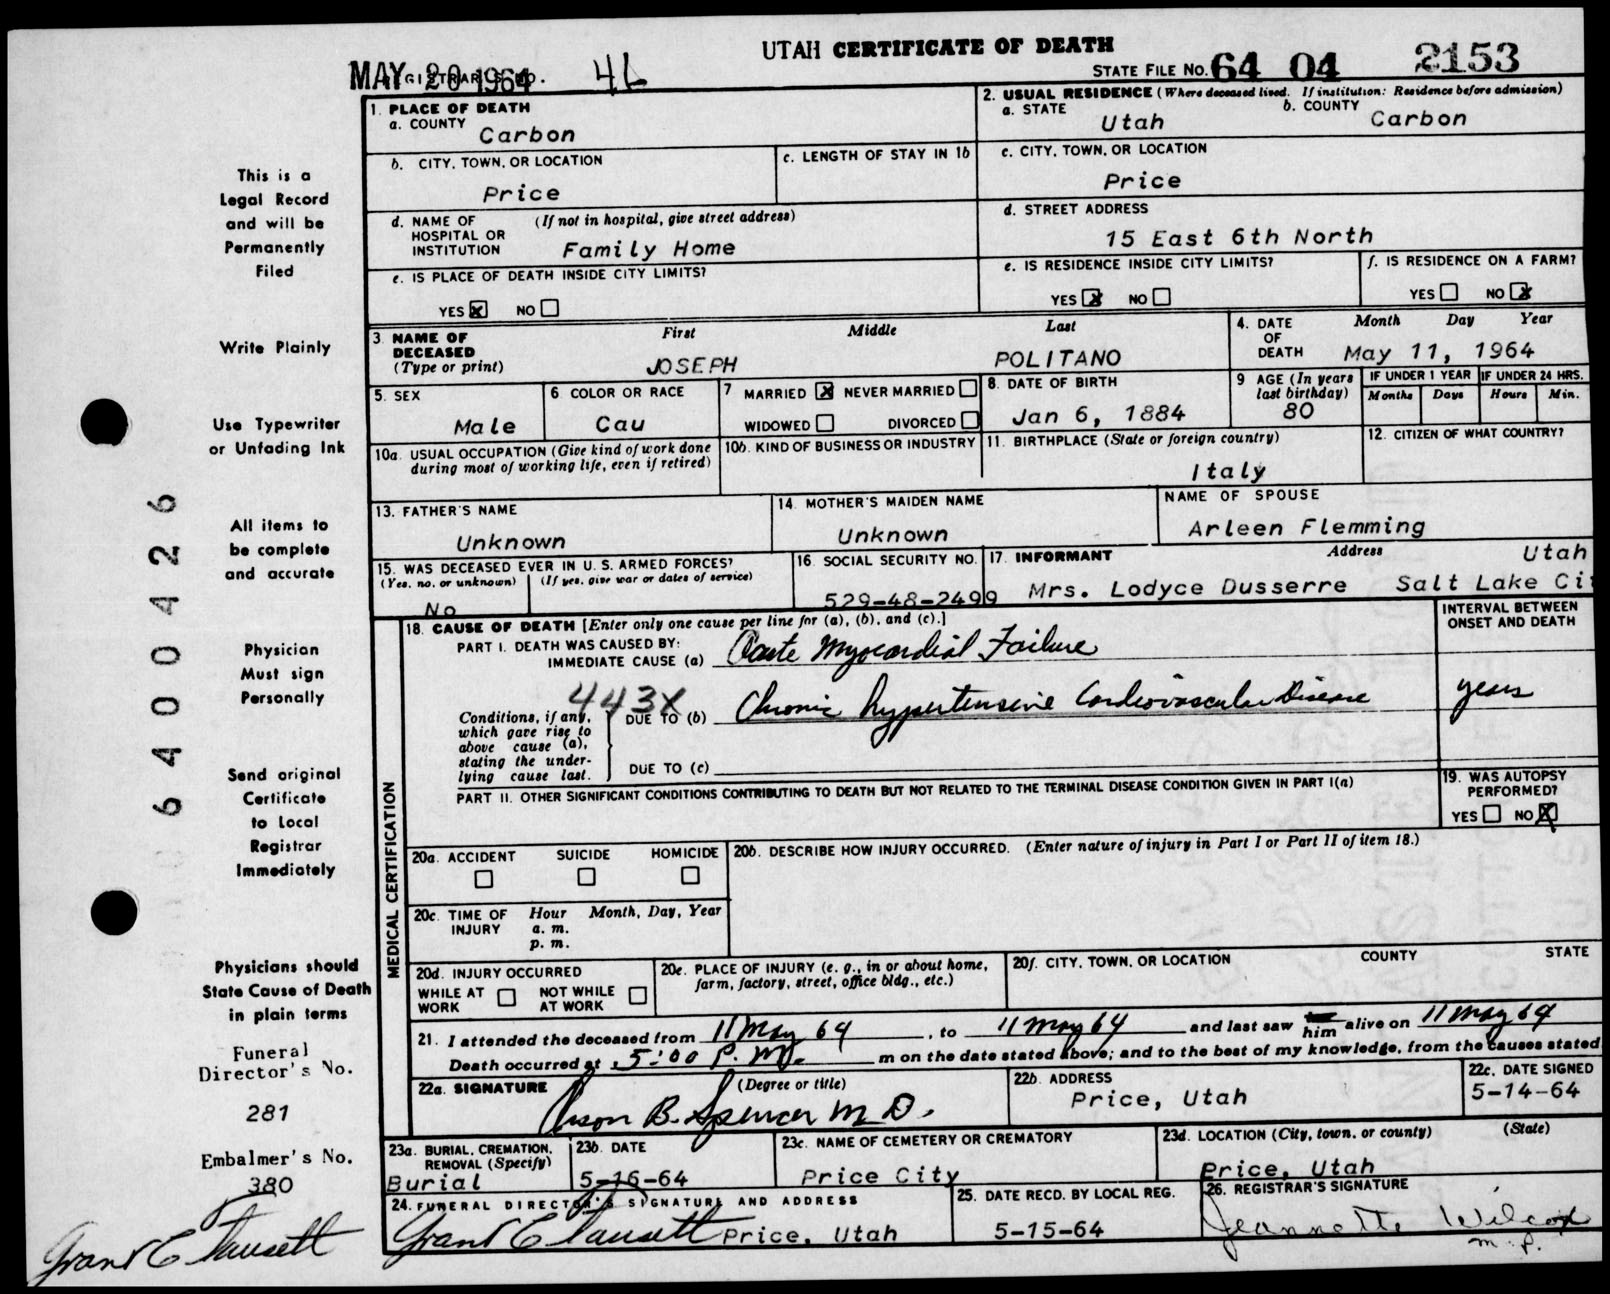 UTAH CERTIFICATE OF DEATH
MAY 20 1964 REGISTRAR'S NO. 46 STATE FILE NO. 64 04 2153
1. PLACE OF DEATH
a. COUNTY Carbon
2. USUAL RESIDENCE (Where deceased lived. If institution: Residence before admission)
a. STATE Utah b. COUNTY Carbon
b. CITY, TOWN, OR LOCATION Price
c. LENGTH OF STAY IN 1b
c. CITY, TOWN, OR LOCATION
Price
d. NAME OF HOSPITAL OR INSTITUTION (If not in hospital, give street address)
Family Home
d. STREET ADDRESS
15 East 6th North
e. IS PLACE OF DEATH INSIDE CITY LIMITS?
YES x NO
e. IS RESIDENCE INSIDE CITY LIMITS?
YES x NO
f. IS RESIDENCE ON A FARM?
YES NO x
3. NAME OF DECEASED (Type or print)
First Middle Last
JOSEPH POLITANO
4. DATE OF DEATH Month Day Year
May 11, 1964
5. SEX
Male
6. COLOR OR RACE
Cau
7 MARRIED x NEVER MARRIED
WIDOWED DIVORCED
8. DATE OF BIRTH
Jan 6, 1884
9 AGE (In years last birthday)
80
IF UNDER 1 YEAR IF UNDER 24 HRS.
Months Days Hours Min.
10a. USUAL OCCUPATION (Give kind of work done during most of working life, even if retired)
10b. KIND OF BUSINESS OR INDUSTRY
11. BIRTHPLACE (State or foreign country)
Italy
12. CITIZEN OF WHAT COUNTRY?
13. FATHER'S NAME
Unknown
14. MOTHER'S MAIDEN NAME
Unknown
NAME OF SPOUSE
Arleen Flemming
15. WAS DECEASED EVER IN U. S. ARMED FORCES?
(Yes, no, or unknown) (If yes, give war or dates of service)
No
16. SOCIAL SECURITY NO.
529-48-2499
17. INFORMANT Address Utah
Mrs. Lodyce Dusserre Salt Lake Ci
MEDICAL CERTIFICATION
18. CAUSE OF DEATH [Enter only one cause per line for (a), (b), and (c).]
INTERVAL BETWEEN ONSET AND DEATH
PART I. DEATH WAS CAUSED BY:
IMMEDIATE CAUSE (a) Acute Myocardial Failure
443X
Conditions, if any, which gave rise to above cause (a), stating the underlying cause last.
DUE TO (b) Chronic hypertensive Cardiovascular Disease years
DUE TO (c)
PART II. OTHER SIGNIFICANT CONDITIONS CONTRIBUTING TO DEATH BUT NOT RELATED TO THE TERMINAL DISEASE CONDITION GIVEN IN PART I(a)
19. WAS AUTOPSY PERFORMED?
YES NO X
20a. ACCIDENT SUICIDE HOMICIDE
20b. DESCRIBE HOW INJURY OCCURRED. (Enter nature of injury in Part I or Part II of item 18.)
20c. TIME OF INJURY Hour Month, Day, Year
a. m.
p. m.
20d. INJURY OCCURRED
WHILE AT WORK NOT WHILE AT WORK
20e. PLACE OF INJURY (e. g., in or about home, farm, factory, street, office bldg., etc.)
20f. CITY, TOWN, OR LOCATION COUNTY STATE
21. I attended the deceased from 11 May 64, to 11 May 64 and last saw him alive on 11 May 64
Death occurred at 5:00 P. M. m on the date stated above; and to the best of my knowledge, from the causes stated.
22a. SIGNATURE (Degree or title)
Orson B. Spencer M D.
22b. ADDRESS
Price, Utah
22c. DATE SIGNED
5-14-64
23a. BURIAL, CREMATION, REMOVAL (Specify)
Burial
23b. DATE
5-16-64
23c. NAME OF CEMETERY OR CREMATORY
Price City
23d. LOCATION (City, town, or county) (State)
Price, Utah
24. FUNERAL DIRECTOR'S SIGNATURE AND ADDRESS
Grant C Fausett Price, Utah
25. DATE RECD. BY LOCAL REG.
5-15-64
26. REGISTRAR'S SIGNATURE
Jeannette Wilcox
m.p.
This is a
Legal Record
and will be
Permanently
Filed
Write Plainly
Use Typewriter
or Unfading Ink
All items to
be complete
and accurate
Physician
Must sign
Personally
Send original
Certificate
to Local
Registrar
Immediately
Physicians should
State Cause of Death
in plain terms
Funeral
Director's No.
281
Embalmer's No.
380
Grant C Fausett
6400426